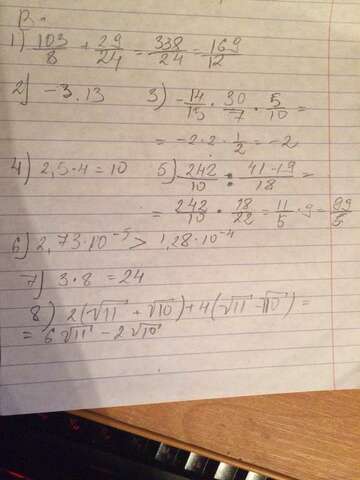 В.
1) 103/8 + 29/24 = 338/24 = 169/12
2) -3.13
3) -14/15 · 30/7 · 5/10 =
= -2 · 2 · 1/2 = -2
4) 2,5 · 4 = 10
5) 242/10 : (41-19)/18 =
= 242/10 · 18/22 = 11/5 · 9 = 99/5
6) 2,73·10⁻⁵ > 1,28·10⁻⁴
7) 3 · 8 = 24
8) 2(√11 + √10) + 4(√11 - √10) =
= 6√11 - 2√10